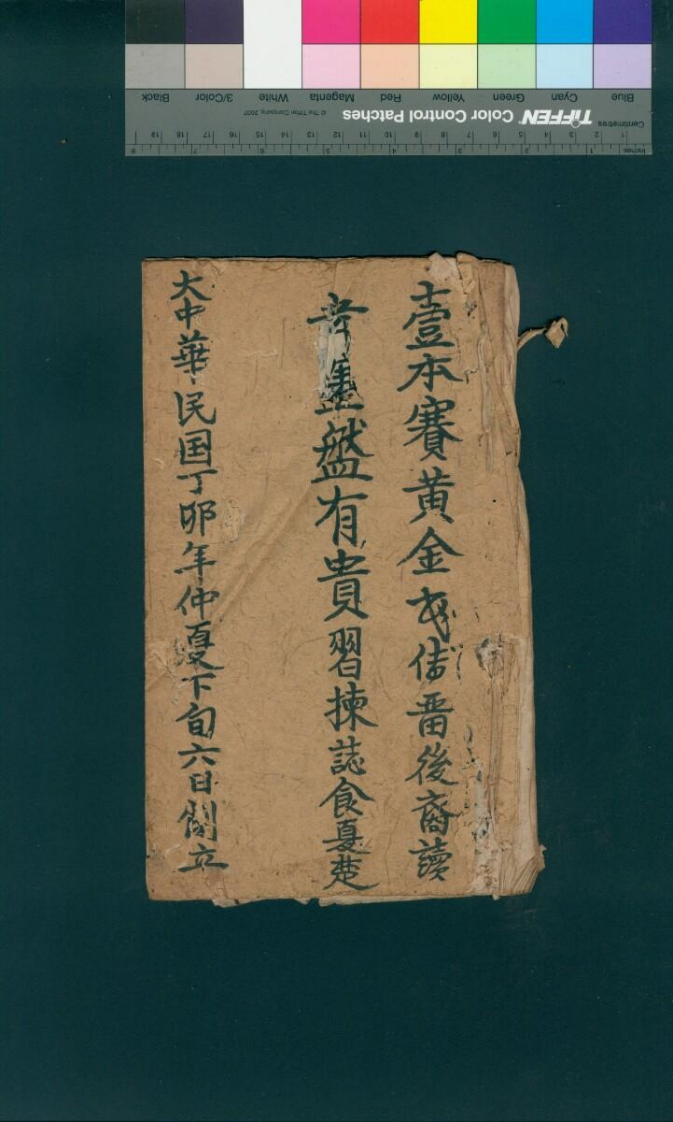 Blue Cyan Green Yellow Red Magenta White 3/Color Black
Centimetres TIFFEN Color Control Patches © The Tiffen Company, 2007
壹本賽黃金 後裔讀
盤有貴習揀誌食夏楚
大中華民国丁卯年仲夏下旬六日開立